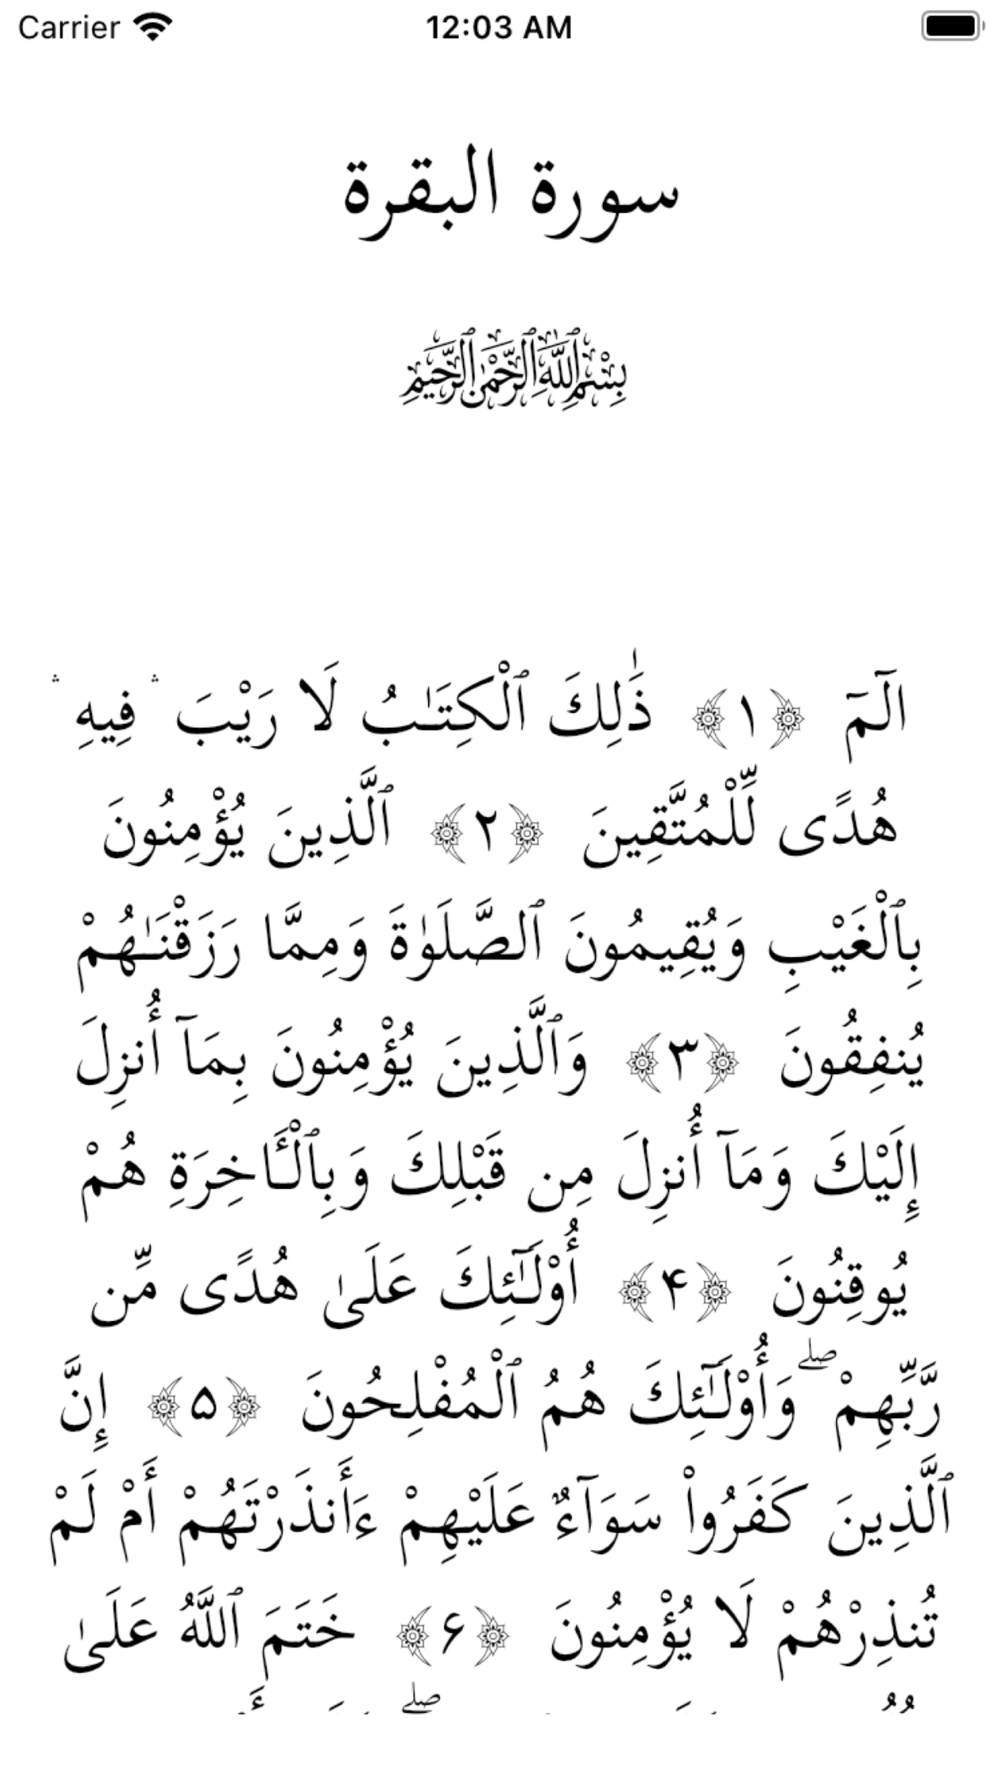 Carrier 12:03 AM
سورة البقرة
بِسْمِ ٱللَّهِ ٱلرَّحْمَٰنِ ٱلرَّحِيمِ
الٓمٓ ﴿۱﴾ ذَٰلِكَ ٱلْكِتَـٰبُ لَا رَيْبَ ۛ فِيهِ ۛ
هُدًى لِّلْمُتَّقِينَ ﴿۲﴾ ٱلَّذِينَ يُؤْمِنُونَ
بِٱلْغَيْبِ وَيُقِيمُونَ ٱلصَّلَوٰةَ وَمِمَّا رَزَقْنَـٰهُمْ
يُنفِقُونَ ﴿۳﴾ وَٱلَّذِينَ يُؤْمِنُونَ بِمَآ أُنزِلَ
إِلَيْكَ وَمَآ أُنزِلَ مِن قَبْلِكَ وَبِٱلْـَٔاخِرَةِ هُمْ
يُوقِنُونَ ﴿۴﴾ أُوْلَـٰٓئِكَ عَلَىٰ هُدًى مِّن
رَّبِّهِمْ ۖ وَأُوْلَـٰٓئِكَ هُمُ ٱلْمُفْلِحُونَ ﴿۵﴾ إِنَّ
ٱلَّذِينَ كَفَرُواْ سَوَآءٌ عَلَيْهِمْ ءَأَنذَرْتَهُمْ أَمْ لَمْ
تُنذِرْهُمْ لَا يُؤْمِنُونَ ﴿۶﴾ خَتَمَ ٱللَّهُ عَلَىٰ